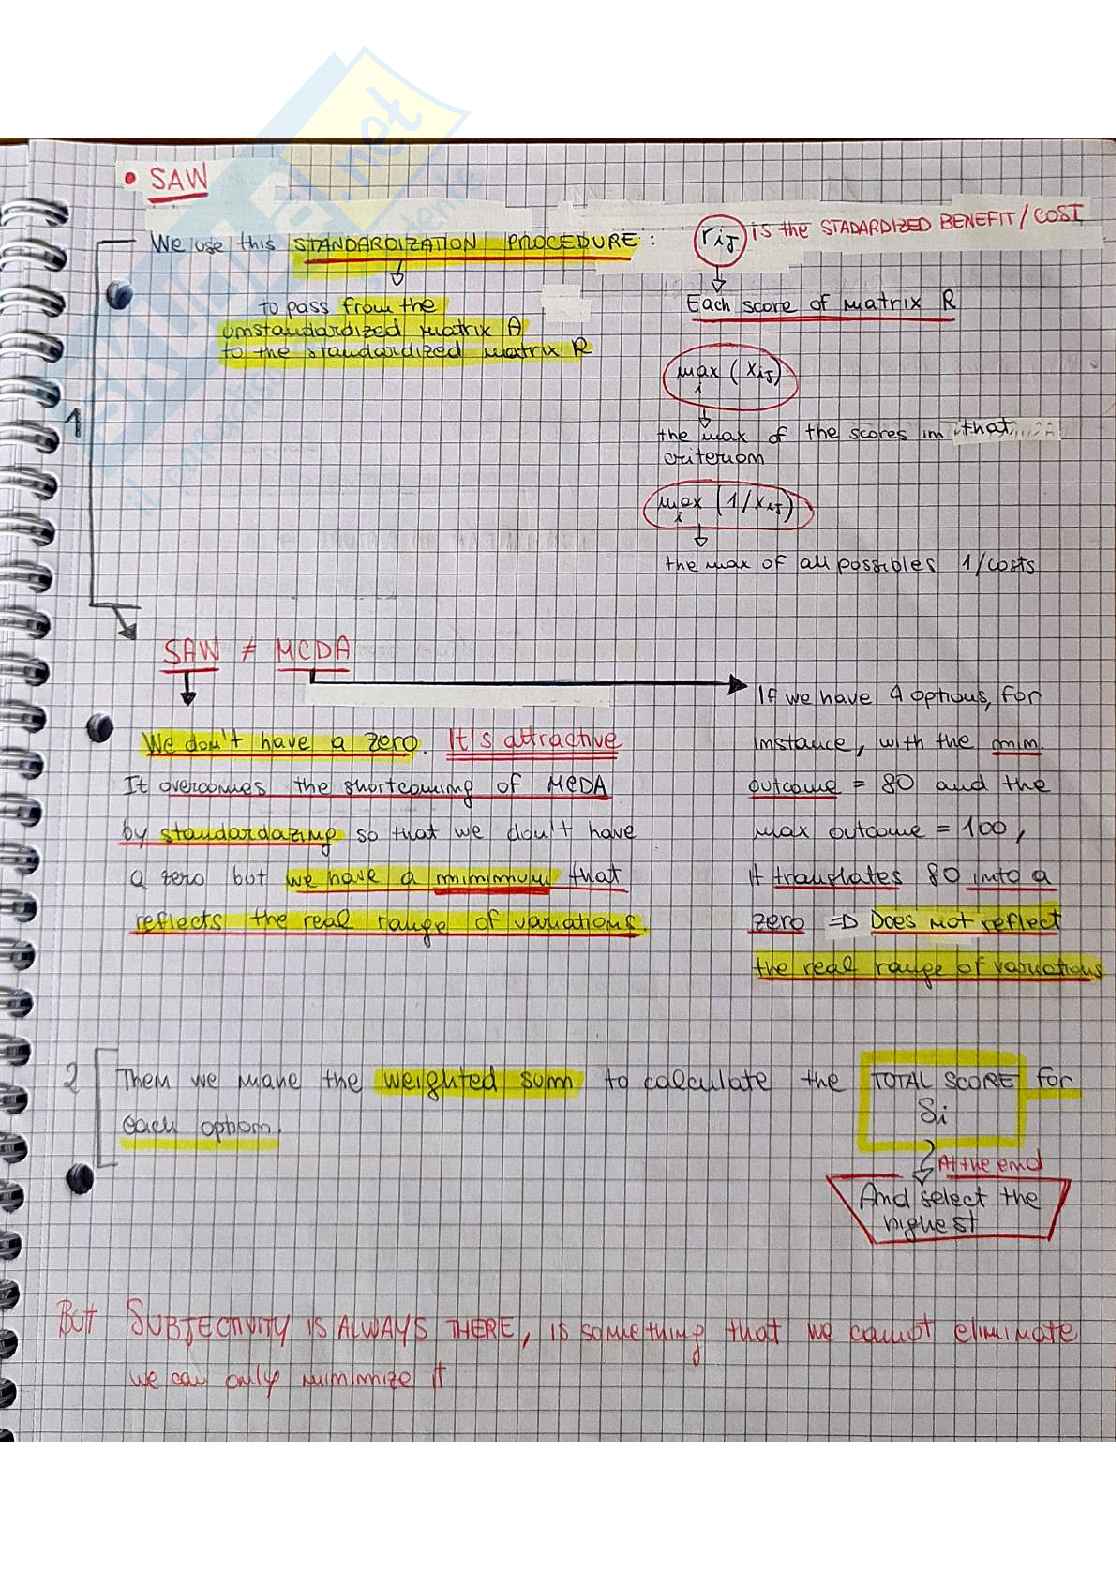 • SAW
We use this STANDARDIZATION PROCEDURE:
to pass from the
unstandardized matrix A
to the standardized matrix R
rij is the STADARDIZED BENEFIT/COST
Each score of matrix R
max (xij)
i
the max of the scores in that
criterion
max (1/xij)
i
the max of all possibles 1/costs
1
SAW ≠ MCDA
We don't have a zero. It's attractive
It overcomes the shortcoming of MCDA
by standardazing so that we don't have
a zero but we have a minimum that
reflects the real range of variations.
If we have 4 options, for
instance, with the min
outcome = 80 and the
max outcome = 100,
it translates 80 into a
zero => Does not reflect
the real range of variations
2 Then we make the weighted sum to calculate the TOTAL SCORE for
Si
each option.
At the end
And select the
highest
But SUBJECTIVITY IS ALWAYS THERE, is something that we cannot eliminate
we can only minimize it